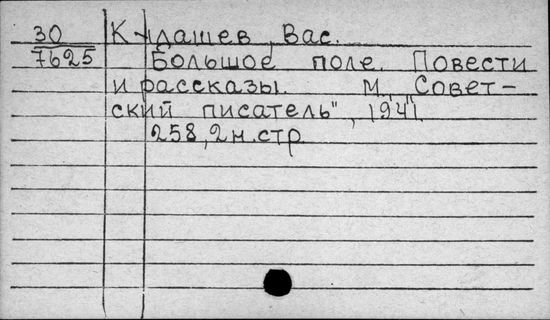 30 Кудашев, Вас.
7625 Большое поле. Повести
и рассказы. М, "Совет-
ский писатель", 1941.
258, 2 н. стр.